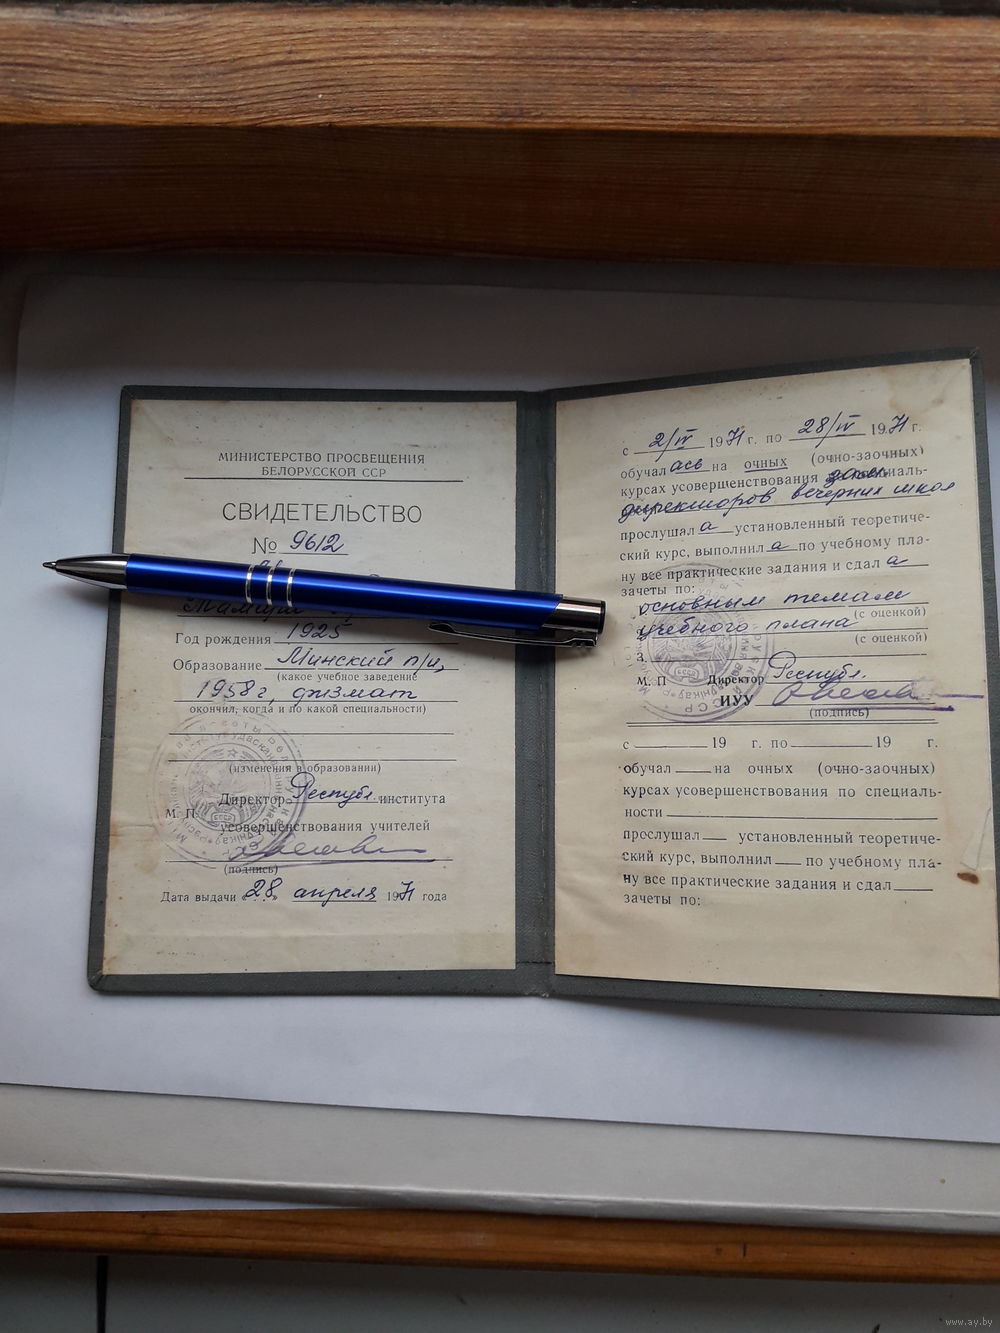 МИНИСТЕРСТВО ПРОСВЕЩЕНИЯ
БЕЛОРУССКОЙ ССР
СВИДЕТЕЛЬСТВО
№ 9612
Год рождения 1925
Образование Минский п/и,
(какое учебное заведение
1958 г, физмат
окончил, когда и по какой специальности)
(изменения в образовании)
М. П. Директор Республ. института
усовершенствования учителей
(подпись)
Дата выдачи «28» апреля 1971 года
с 2/IV 1971 г. по 28/IV 1971 г.
обучалась на очных (очно-заочных)
курсах усовершенствования зам. по специаль-
директоров вечерних школ
прослушала установленный теоретиче-
ский курс, выполнила по учебному пла-
ну все практические задания и сдала
зачеты по:
основным темам
(с оценкой)
учебного плана
(с оценкой)
3.
М. П Директор Республ.
ИУУ
(подпись)
с 19 г. по 19 г.
обучал на очных (очно-заочных)
курсах усовершенствования по специаль-
ности
прослушал установленный теоретиче-
ский курс, выполнил по учебному пла-
ну все практические задания и сдал
зачеты по:
www.ay.by